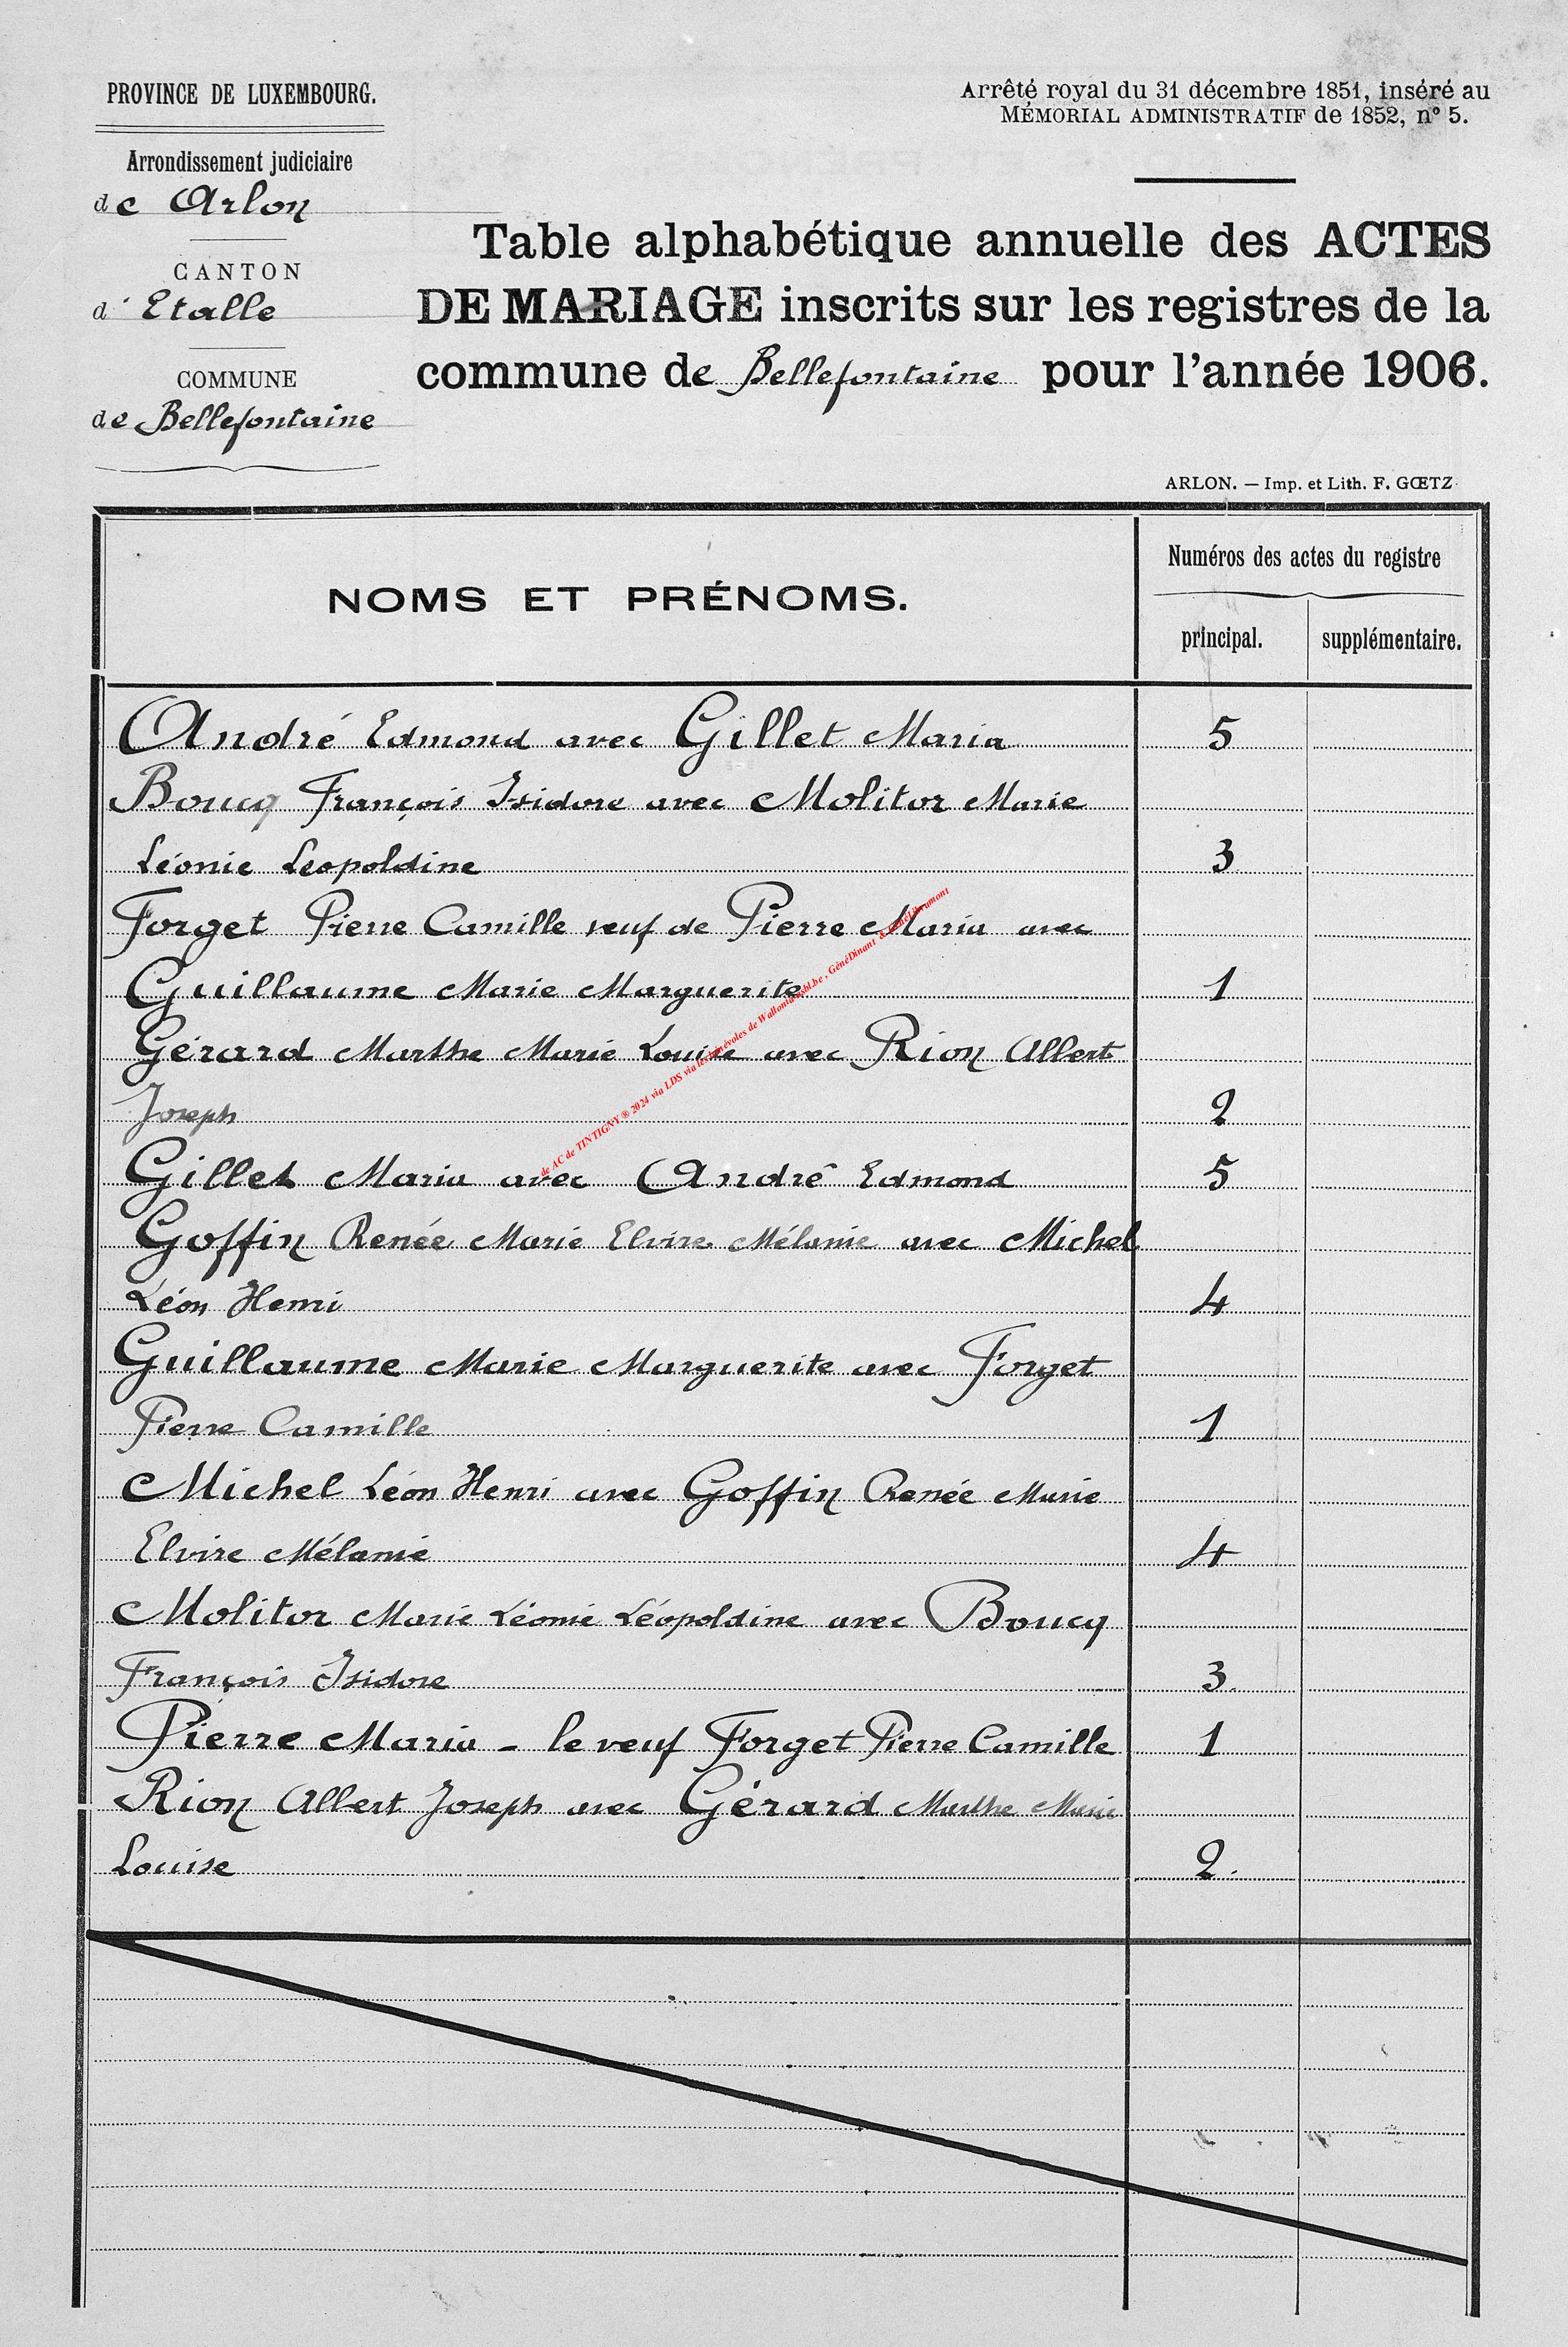 PROVINCE DE LUXEMBOURG.
Arrondissement judiciaire
de Arlon
CANTON
d' Etalle
COMMUNE
de Bellefontaine
Arrêté royal du 31 décembre 1851, inséré au
MÉMORIAL ADMINISTRATIF de 1852, n° 5.
Table alphabétique annuelle des ACTES
DE MARIAGE inscrits sur les registres de la
commune de Bellefontaine pour l'année 1906.
ARLON. — Imp. et Lith. F. GŒTZ
NOMS ET PRÉNOMS.
Numéros des actes du registre
principal. supplémentaire.
André Edmond avec Gillet Maria 5
Boucq François Isidore avec Molitor Marie
Léonie Leopoldine 3
Forget Pierre Camille veuf de Pierre Maria avec
Guillaume Marie Marguerite 1
Gérard Marthe Marie Louise avec Rion Albert
Joseph 2
Gillet Maria avec André Edmond 5
Goffin Renée Marie Elvire Mélanie avec Michel
Léon Henri 4
Guillaume Marie Marguerite avec Forget
Pierre Camille 1
Michel Léon Henri avec Goffin Renée Marie
Elvire Mélanie 4
Molitor Marie Léonie Léopoldine avec Boucq
François Isidore 3.
Pierre Maria - le veuf Forget Pierre Camille 1
Rion Albert Joseph avec Gérard Marthe Marie
Louise 2.
de AC de TINTIGNY ® 2024 via LDS via les bénévoles de Wallonia asbl.be , GénéDinant &